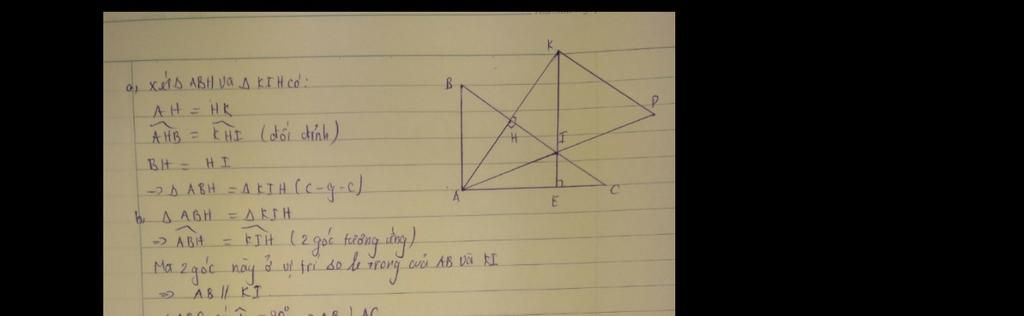 a, Xét Δ ABH và Δ KIH có:
AH = HK
AHB = KHI (đối đỉnh)
BH = HI
=> Δ ABH = Δ KIH (c-g-c)
b, Δ ABH = Δ KIH
=> ABH = KIH (2 góc tương ứng)
Mà 2 góc này ở vị trí so le trong của AB và KI
=> AB // KI
K
B
D
H
I
A
E
C